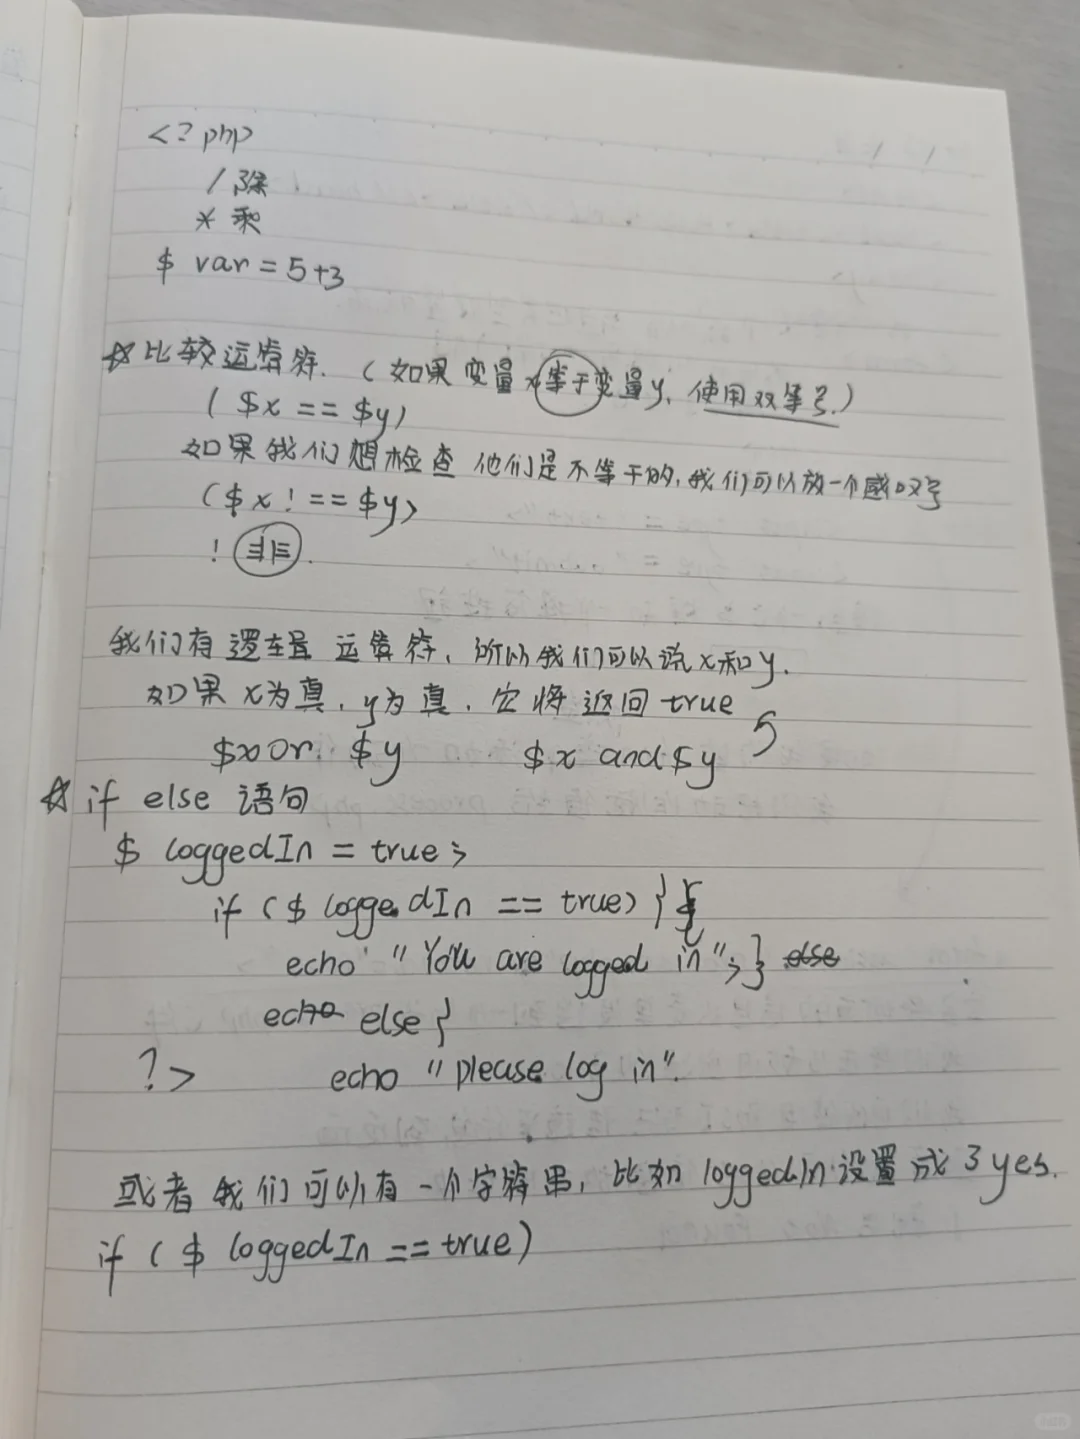 <?php
/ 除
* 乘
$ var = 5+3
☆ 比较运算符. (如果变量x等于变量y, 使用双等号.)
($x == $y)
如果我们想检查他们是不等于的,我们可以放一个感叹号
($x! == $y)
! 非.
我们有逻辑运算符, 所以我们可以说x和y.
如果x为真, y为真, 它将返回true
$x or $y $x and $y
☆ if else 语句
$ loggedIn = true;
if ($ loggedIn == true) } {
echo "You are logged in"; } else
echo else }
?> echo "please log in".
或者我们可以有一个字符串, 比如 loggedIn 设置成了yes.
if ($ loggedIn == true)